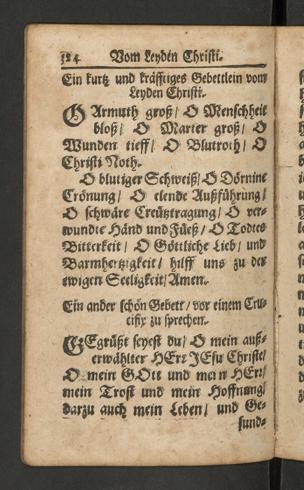 124 Vom Leyden Christi.
Ein kurtz und kräfftiges Gebettlein vom
Leyden Christi.
O Armuth groß/ O Menschheit
bloß/ O Marter groß/ O
Wunden tieff/ O Blutroth/ O
Christi Noth.
O blutiger Schweiß/ O Dörnine
Crönung/ O elende Außführung/
O schwäre Creütztragung/ O ver-
wundte Händ und Füeß/ O Todtes
Bitterkeit/ O Göttliche Lieb/ und
Barmhertzigkeit/ hilff uns zu der
ewigen Seeligkeit/ Amen.
Ein ander schön Gebett/ vor einem Cru-
cifix zu sprechen.
GEgrüßt seyest du/ O mein auß-
erwählter HErr JEsu Christe/
O mein GOtt und mein HErr/
mein Trost und mein Hoffnung/
darzu auch mein Leben/ und Ge-
sund-